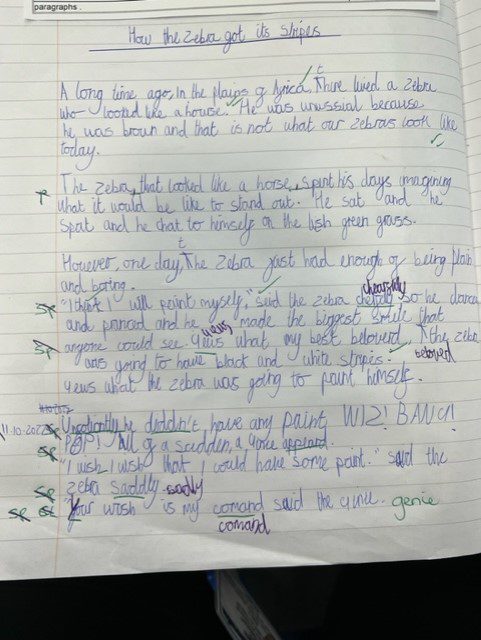 paragraphs.
How the Zebra got its stripes
A long time ago, In the plains of Africa, There lived a zebra
who looked like a house. He was unussial because
he was broun and that is not what our zebras look like
today.
The zebra, that looked like a horse, spent his days imagining
what it would be like to stand out. He sat and he
spat and he chat to himself on the lush green grass.
t
However, one day, The zebra just had enough of being plain
and boring.
chearfuly
sp "I think I will paint myself," said the zebra so he danced
and pranced and he made the biggest smile that
yews
sp anyone could see. yews what my best beloverd, the zebra
beloved
was going to have black and white stripes.
yews what the zebra was going to paint himself.
11.10.202
he diddn't have any paint. WIZ! BANG!
sp POP! All of a sudden, a appeard.
"I wish I wish that I could have some paint." said the
sp zebra saddly. sadly
sp "Your wish is my comand said the genie
comand